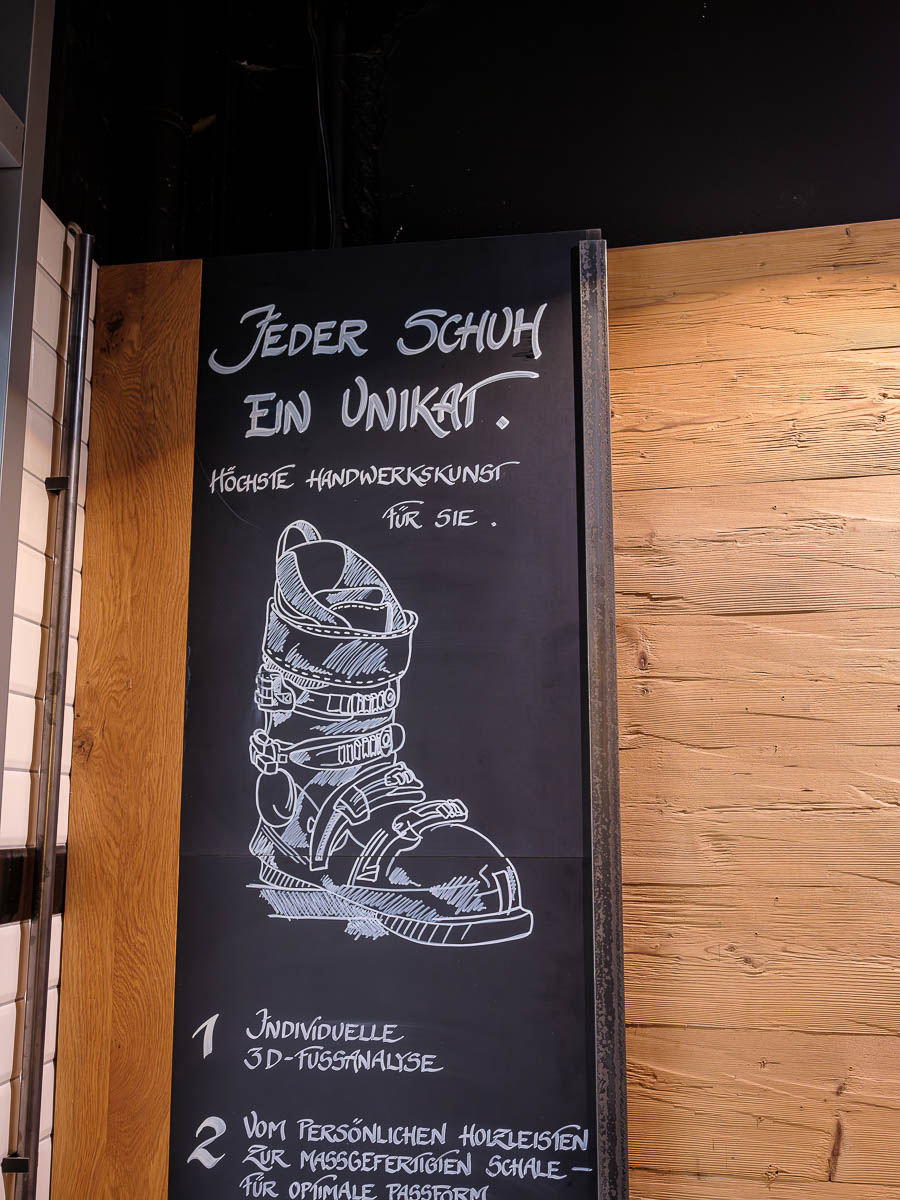 JEDER SCHUH
EIN UNIKAT.
HÖCHSTE HANDWERKSKUNST
FÜR SIE.
1 INDIVIDUELLE
3D-FUSSANALYSE
2 VOM PERSÖNLICHEN HOLZLEISTEN
ZUR MASSGEFERTIGTEN SCHALE –
FÜR OPTIMALE PASSFORM